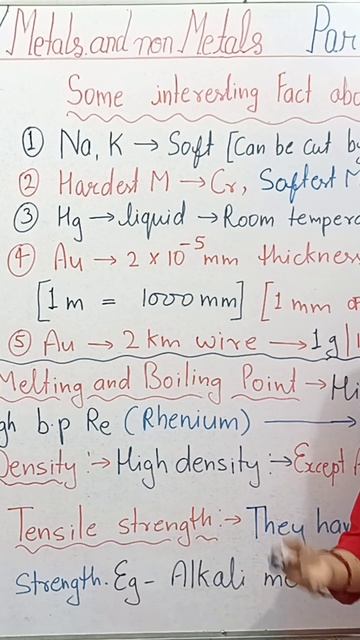 Metals and non Metals Par
Some interesting Fact abo
① Na, K → Soft [Can be cut by
② Hardest M → Cr, Softest M
③ Hg → liquid → Room tempera
④ Au → 2 × 10⁻⁵ mm thickness
[1 m = 1000 mm] [1 mm of
⑤ Au → 2 km wire → 1g
Melting and Boiling Point → Hi
gh b.p Re (Rhenium) →
Density :→ High density :→ Except
Tensile strength :→ They hav
Strength. Eg - Alkali me